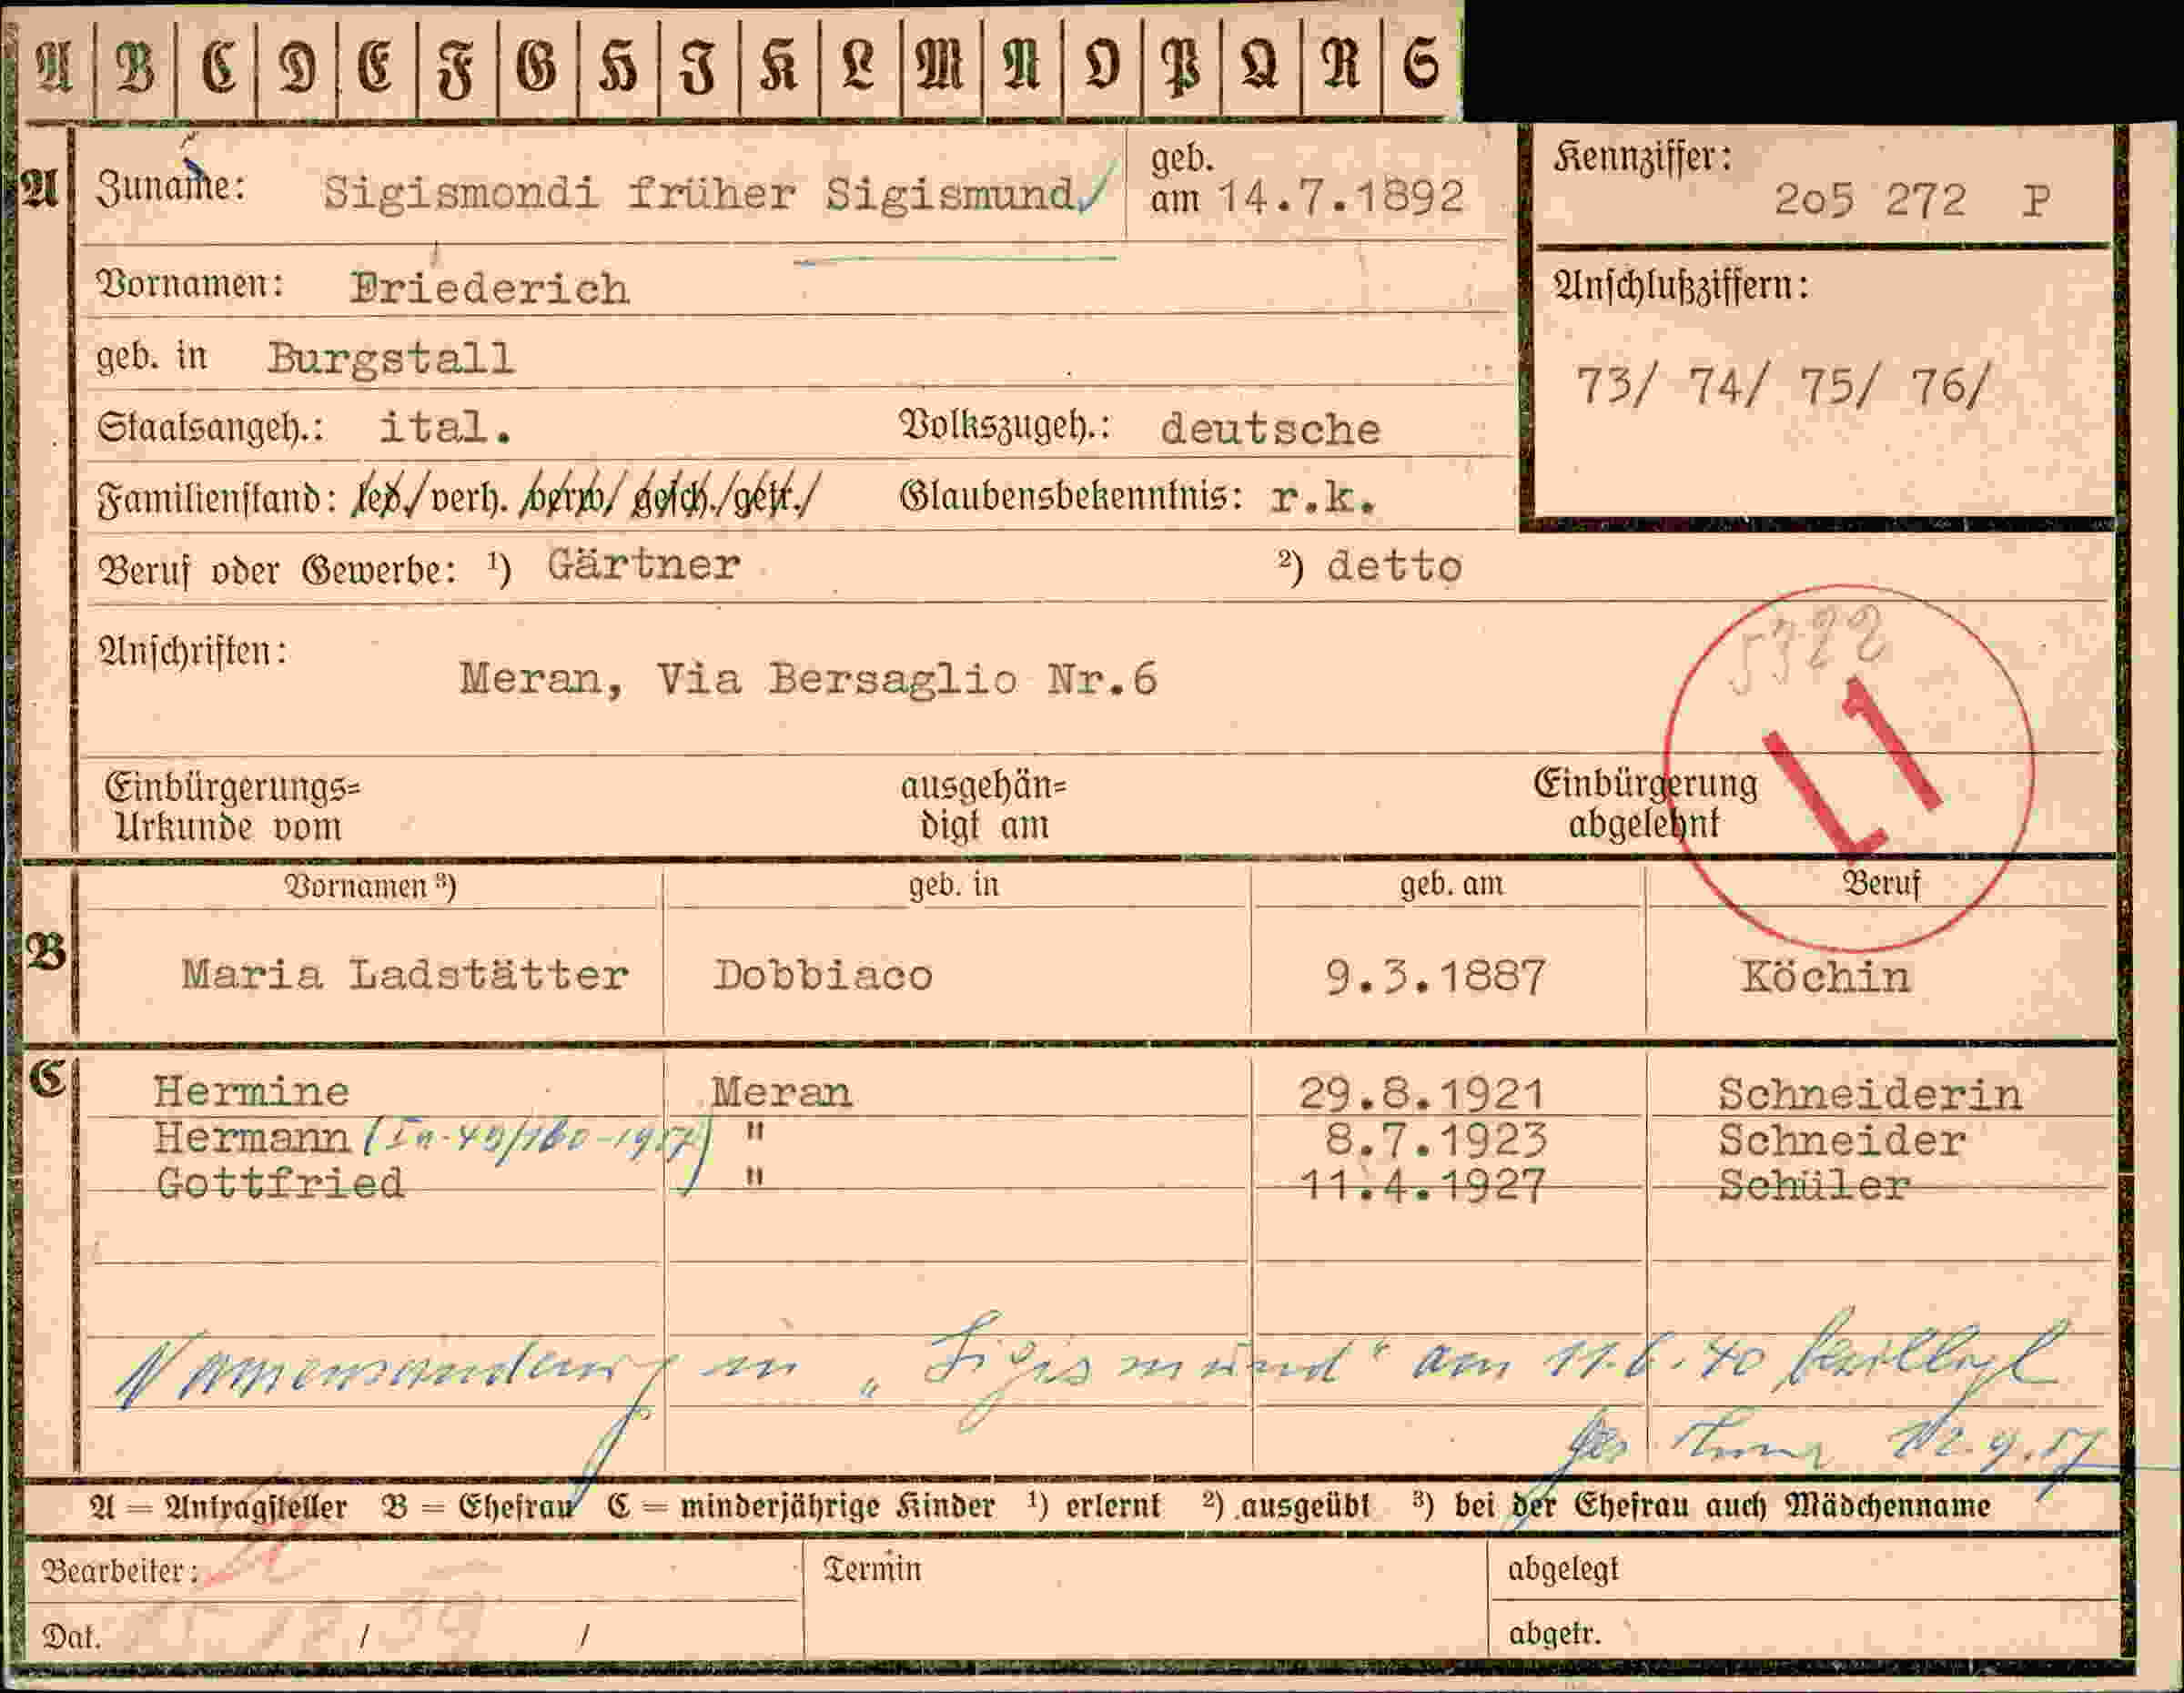 A B C D E F G H I K L M N O P Q R S
A Zuname: Sigismondi früher Sigismund geb. am 14.7.1892
Kennziffer: 2o5 272 P
Vornamen: Friederich
Anschlußziffern:
73/ 74/ 75/ 76/
geb. in Burgstall
Staatsangeh.: ital. Volkszugeh.: deutsche
Familienstand: led./verh. verw/ gesch./getr./ Glaubensbekenntnis: r.k.
Beruf oder Gewerbe: ¹) Gärtner ²) detto
Anschriften: Meran, Via Bersaglio Nr.6
5322
L1
Einbürgerungs= ausgehän= Einbürgerung
Urkunde vom digt am abgelehnt
Vornamen ³) geb. in geb. am Beruf
B Maria Ladstätter Dobbiaco 9.3.1887 Köchin
C Hermine Meran 29.8.1921 Schneiderin
Hermann " 8.7.1923 Schneider
Gottfried " 11.4.1927 Schüler
Namensänderung in „Sigismund" am 11.6.40
12.9.57
A = Antragsteller B = Ehefrau C = minderjährige Kinder ¹) erlernt ²) ausgeübt ³) bei der Ehefrau auch Mädchenname
Bearbeiter: Termin abgelegt
Dat. / / abgetr.